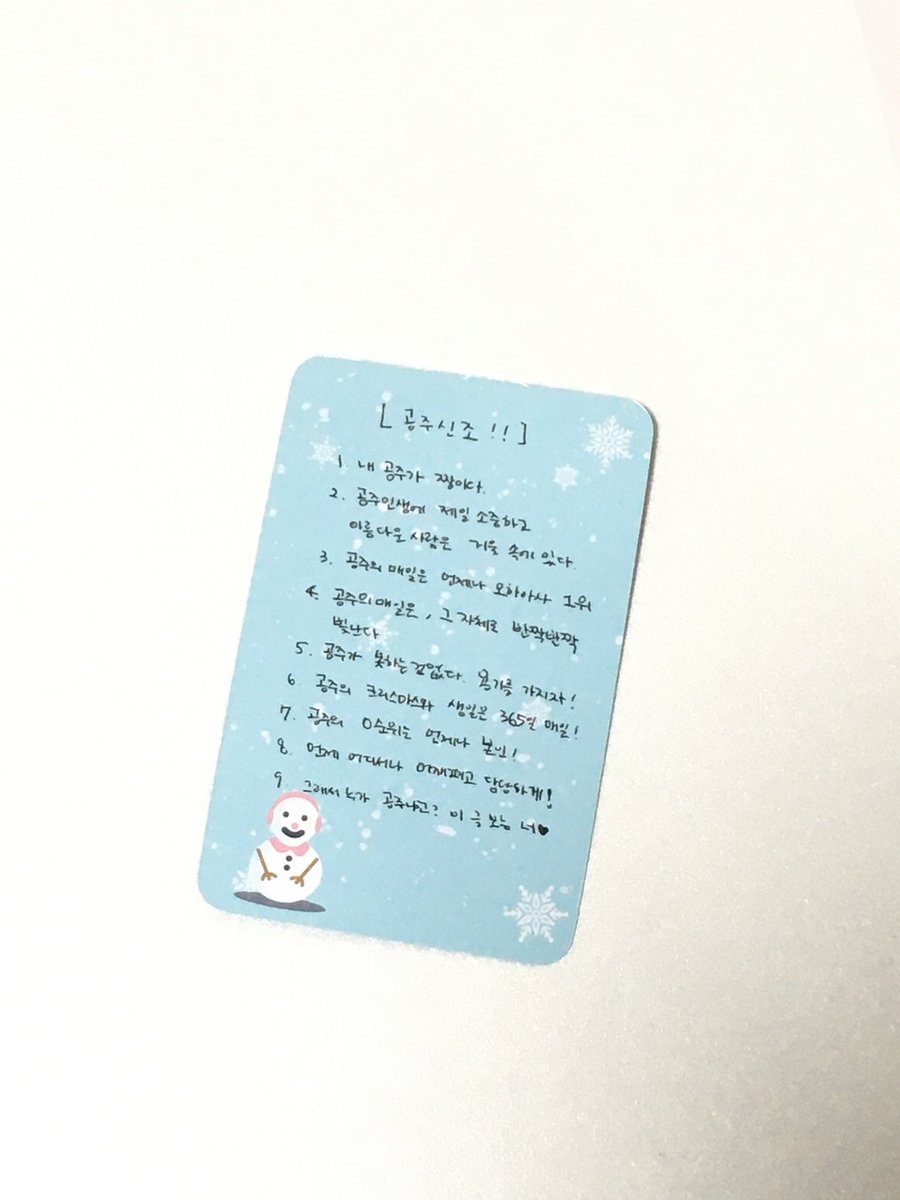 [ 공주신조 !! ]
1. 내 공주가 짱이다.
2. 공주인생에 제일 소중하고
아름다운 사람은 거울 속에 있다.
3. 공주의 매일은 언제나 오하아사 1위
4. 공주의 매일은, 그 자체로 반짝반짝
빛난다
5. 공주가 못하는건없다. 용기를 가지자!
6. 공주의 크리스마스와 생일은 365일 매일!
7. 공주의 0순위는 언제나 본인!
8. 언제 어디서나 어깨펴고 당당하게!
9. 그래서 누가 공주냐고? 이 글 보는 너♥